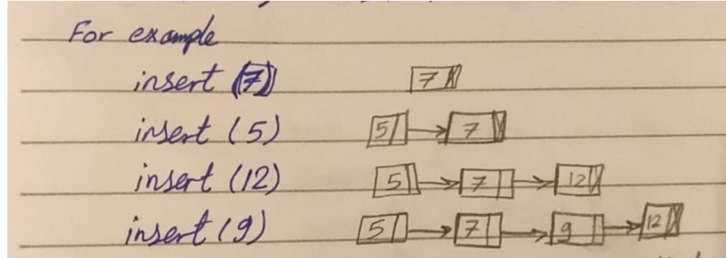 For example
insert (7) 7
insert (5) 5 7
insert (12) 5 7 12
insert (9) 5 7 9 12